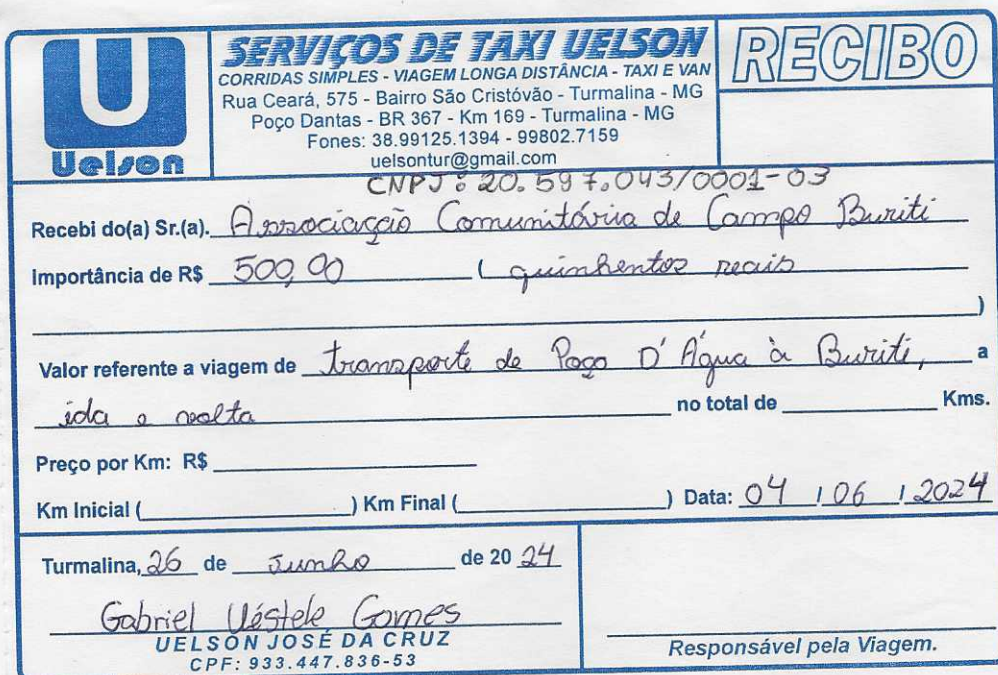 U
Uelson
SERVIÇOS DE TAXI UELSON
CORRIDAS SIMPLES - VIAGEM LONGA DISTÂNCIA - TAXI E VAN
Rua Ceará, 575 - Bairro São Cristóvão - Turmalina - MG
Poço Dantas - BR 367 - Km 169 - Turmalina - MG
Fones: 38.99125.1394 - 99802.7159
uelsontur@gmail.com
RECIBO
CNPJ: 20.597.043/0001-03
Recebi do(a) Sr.(a). Associação Comunitária de Campo Buriti
Importância de R$ 500,00 ( quinhentos reais
)
Valor referente a viagem de transporte de Poço D'Água à Buriti, a
ida e volta no total de Kms.
Preço por Km: R$
Km Inicial ( ) Km Final ( ) Data: 04 / 06 / 2024
Turmalina, 26 de Junho de 20 24
Gabriel Gomes
UELSON JOSÉ DA CRUZ
CPF: 933.447.836-53
Responsável pela Viagem.